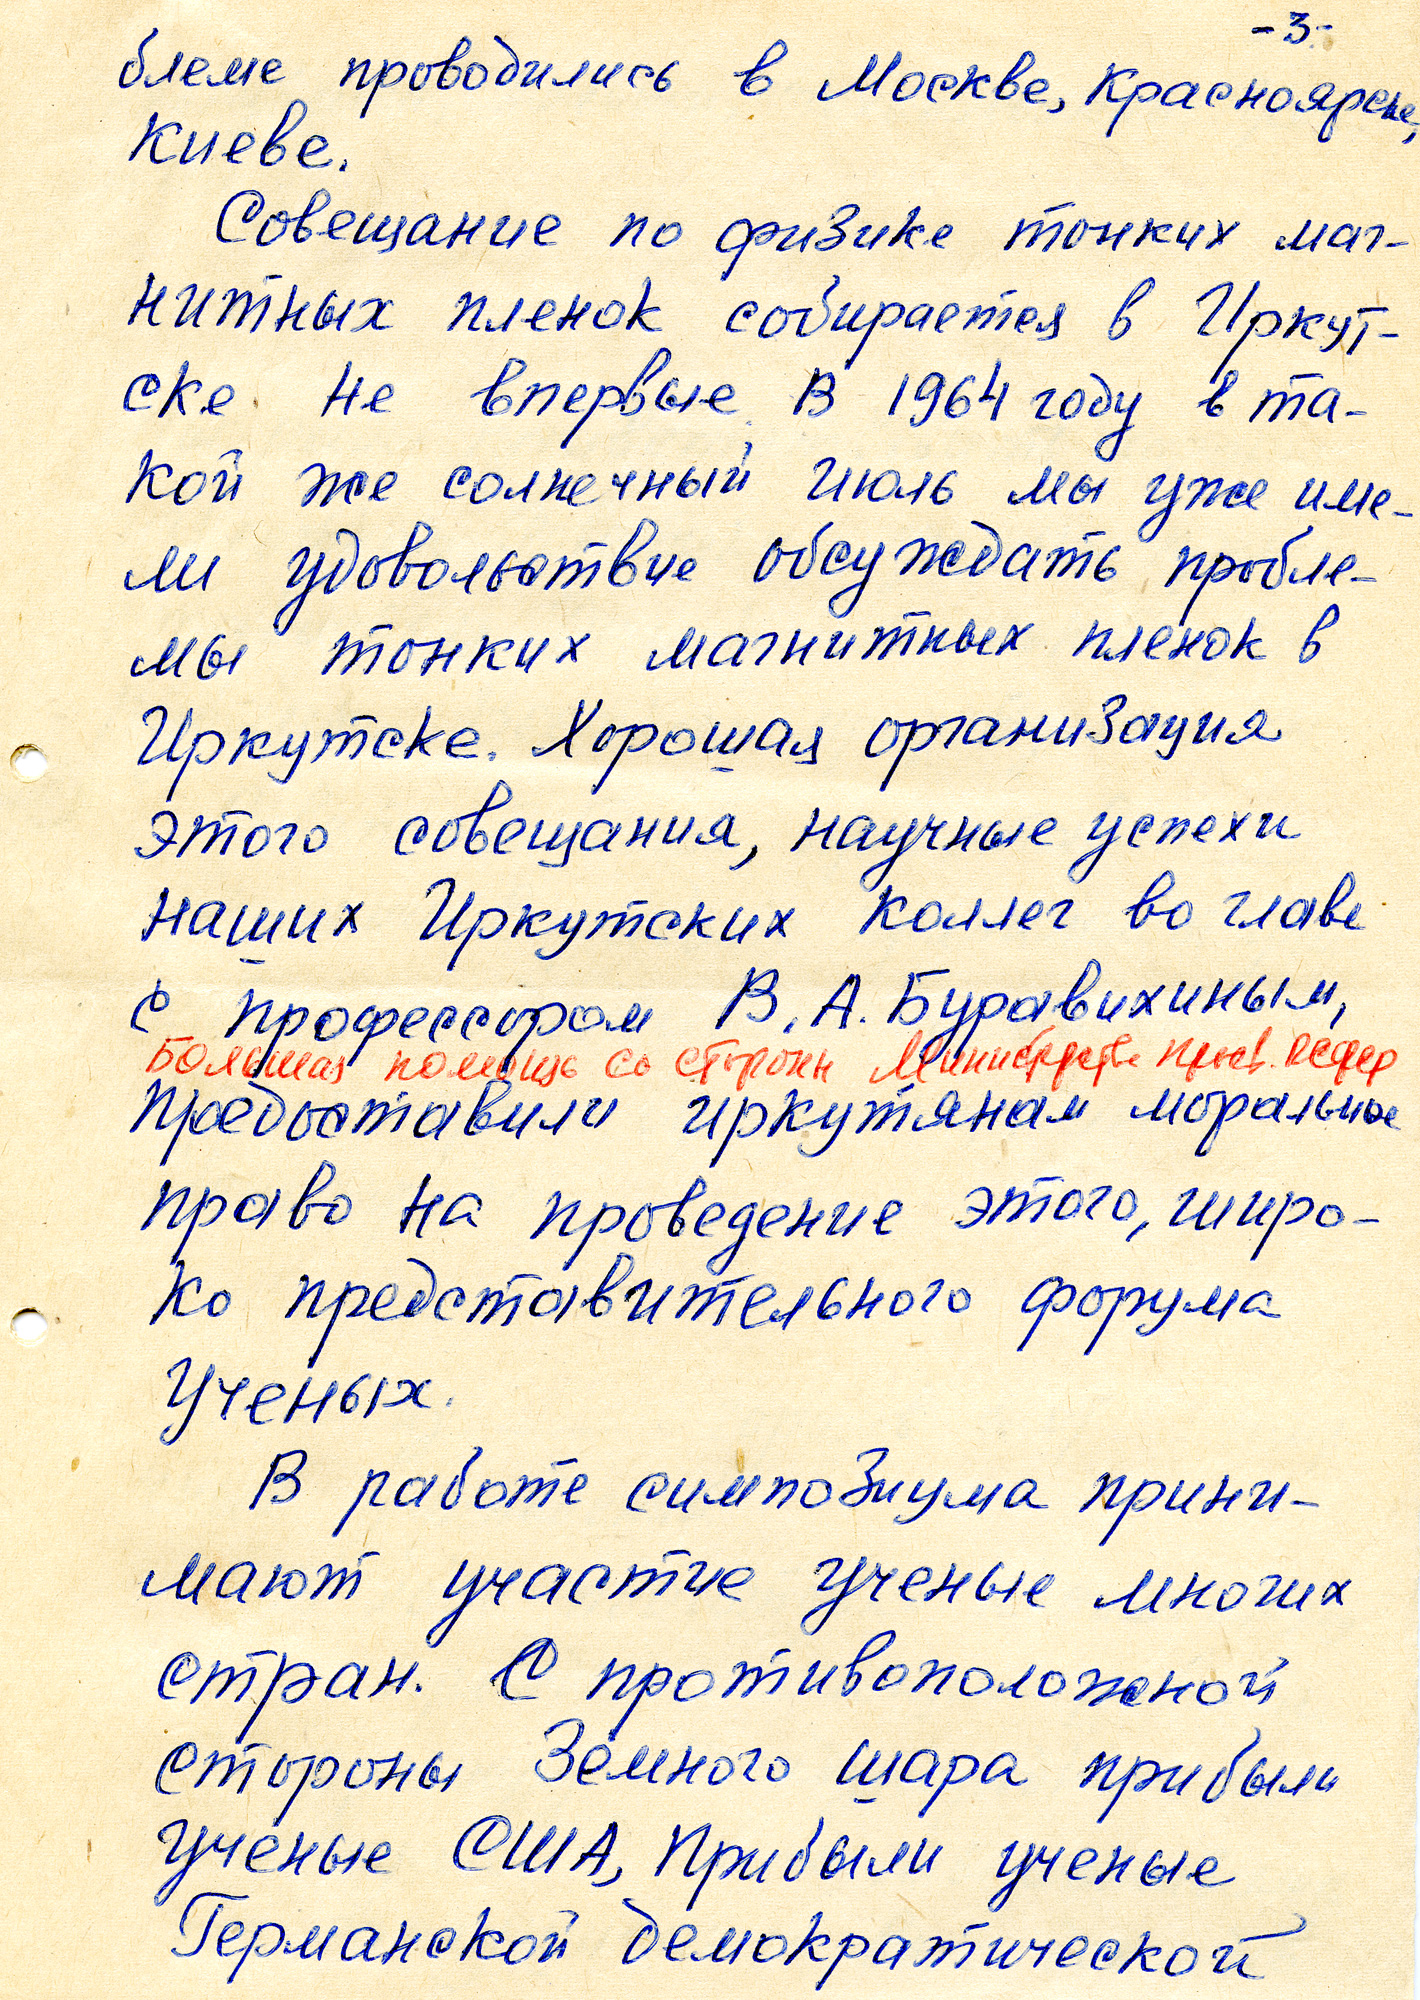 -3-
блеме проводились в Москве, Красноярске,
Киеве.
Совещание по физике тонких маг-
нитных пленок собирается в Иркут-
ске не впервые. В 1964 году в та-
кой же солнечный июль мы уже име-
ли удовольствие обсуждать пробле-
мы тонких магнитных пленок в
Иркутске. Хорошая организация
этого совещания, научные успехи
наших Иркутских коллег во главе
с профессором В.А. Буравихиным,
Большая помощь со стороны Министерства Просв. РСФСР
предоставили иркутянам моральное
право на проведение этого, широ-
ко представительного форума
ученых.
В работе симпозиума прини-
мают участие ученые многих
стран. С противоположной
стороны Земного шара прибыли
ученые США, Прибыли ученые
Германской демократической